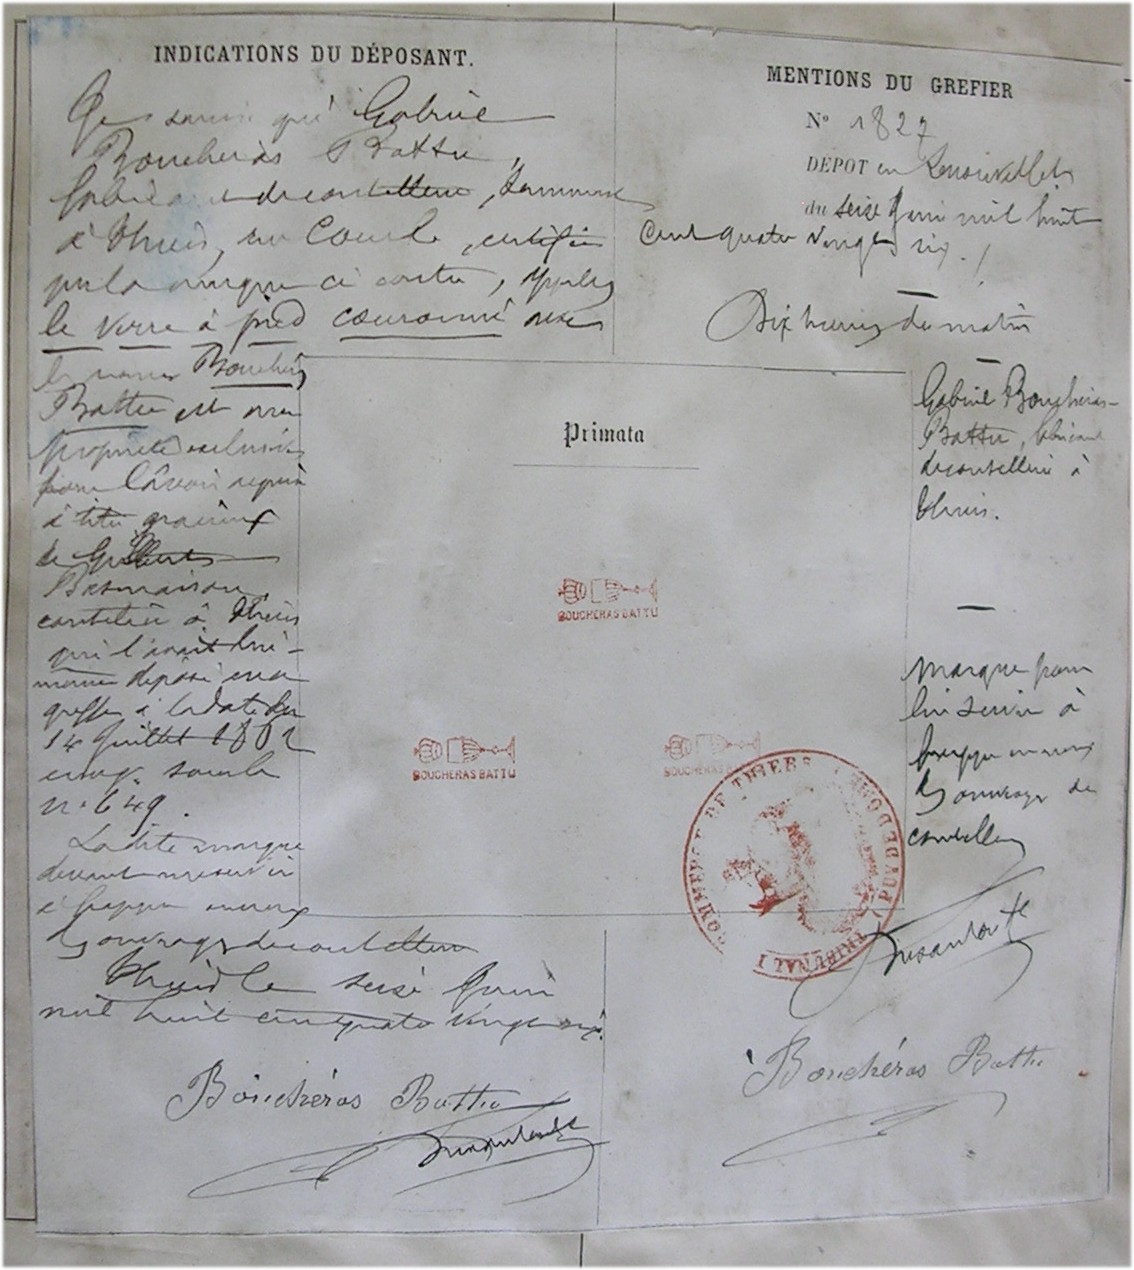 INDICATIONS DU DÉPOSANT.
Gabriel
Boucheras Battu,
fabricant de coutellerie, demeurant
à Thiers, au certifie
que la marque ci contre, appelée
le verre à pied couronné avec
les noms Boucheras
Battu est ma
propriété exclusive
pour l'avoir acquis
à titre gracieux
de
Basmaison
coutelier à Thiers
qui l'avait lui-
même déposé au
greffe à la date du
14 Juillet 18
sous le
n° 649.
La dite marque
devant me servir
à frapper
ouvrages de coutellerie
Thiers le seize Juin
mil huit cent quatre vingt six.
Boucheras Battu
MENTIONS DU GREFIER
N° 1827
DÉPOT en
du seize Juin mil huit
cent quatre vingt six.
Dix heures du matin
Gabriel Boucheras-
Battu, fabricant
de coutellerie à
Thiers.
marque pour
lui servir à
frapper
ouvrages de
coutellerie
Boucheras Battu
Primata
BOUCHERAS BATTU
BOUCHERAS BATTU
BOUCHERAS BATTU
TRIBUNAL COMMERCE DE THIERS PUY DE DOME